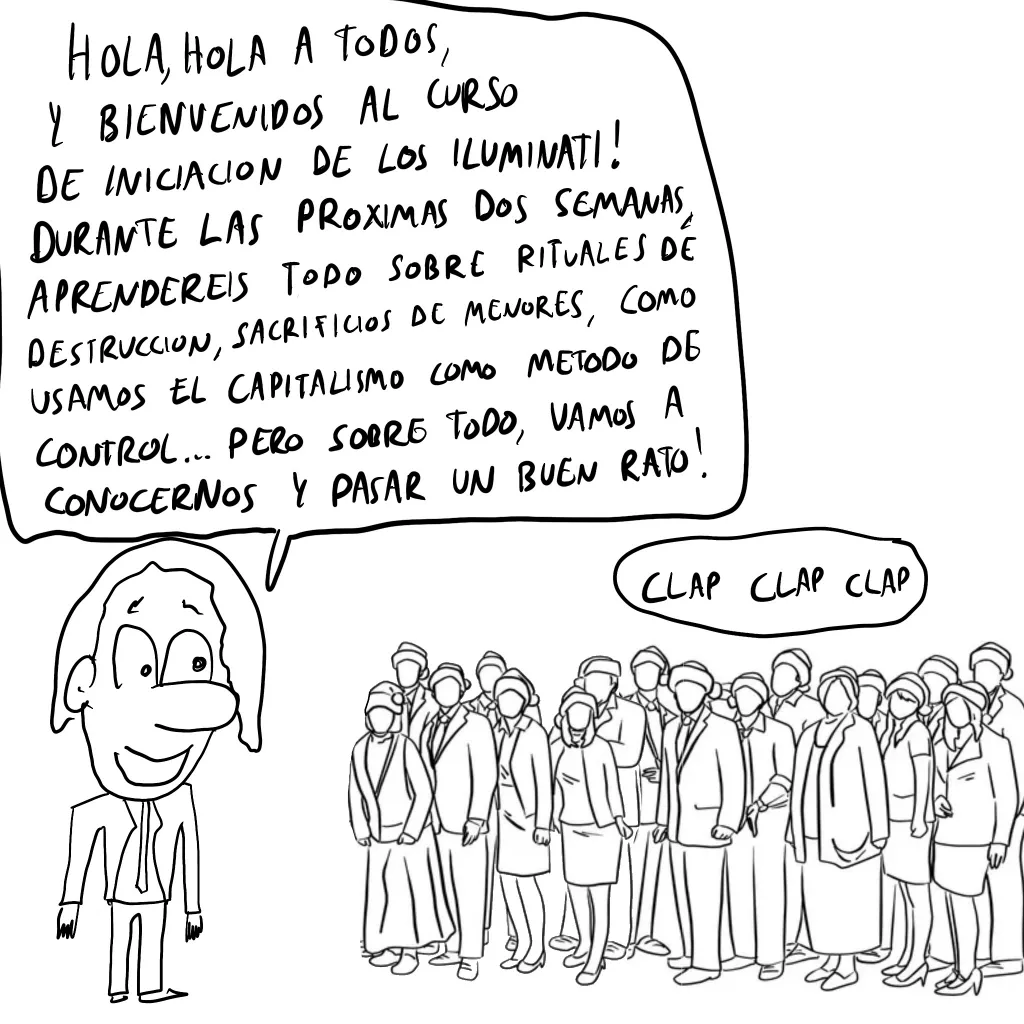 HOLA, HOLA A TODOS,
Y BIENVENIDOS AL CURSO
DE INICIACION DE LOS ILUMINATI!
DURANTE LAS PROXIMAS DOS SEMANAS,
APRENDEREIS TODO SOBRE RITUALES DE
DESTRUCCION, SACRIFICIOS DE MENORES, COMO
USAMOS EL CAPITALISMO COMO METODO DE
CONTROL... PERO SOBRE TODO, VAMOS A
CONOCERNOS Y PASAR UN BUEN RATO!
CLAP CLAP CLAP